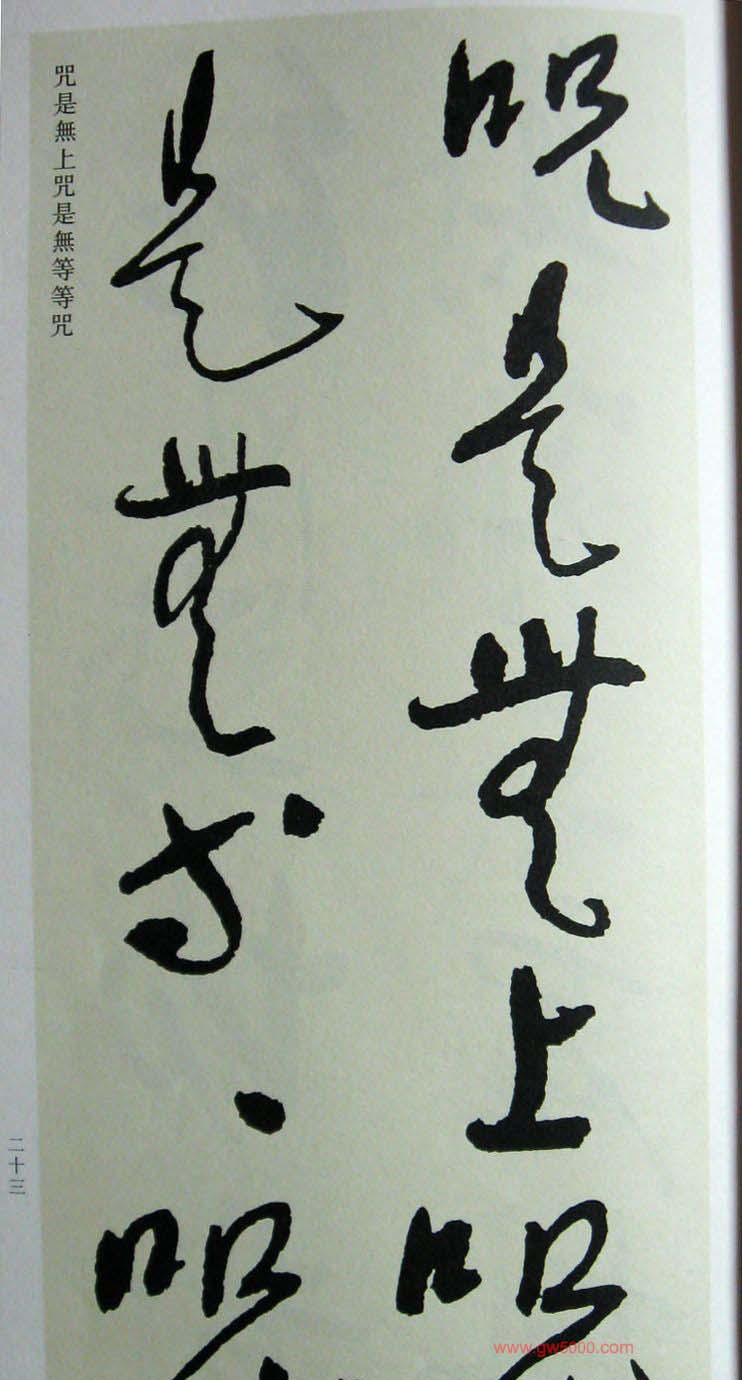 咒是無上咒
是無等等咒
咒是無上咒是無等等咒
二十三
www.gw5000.com